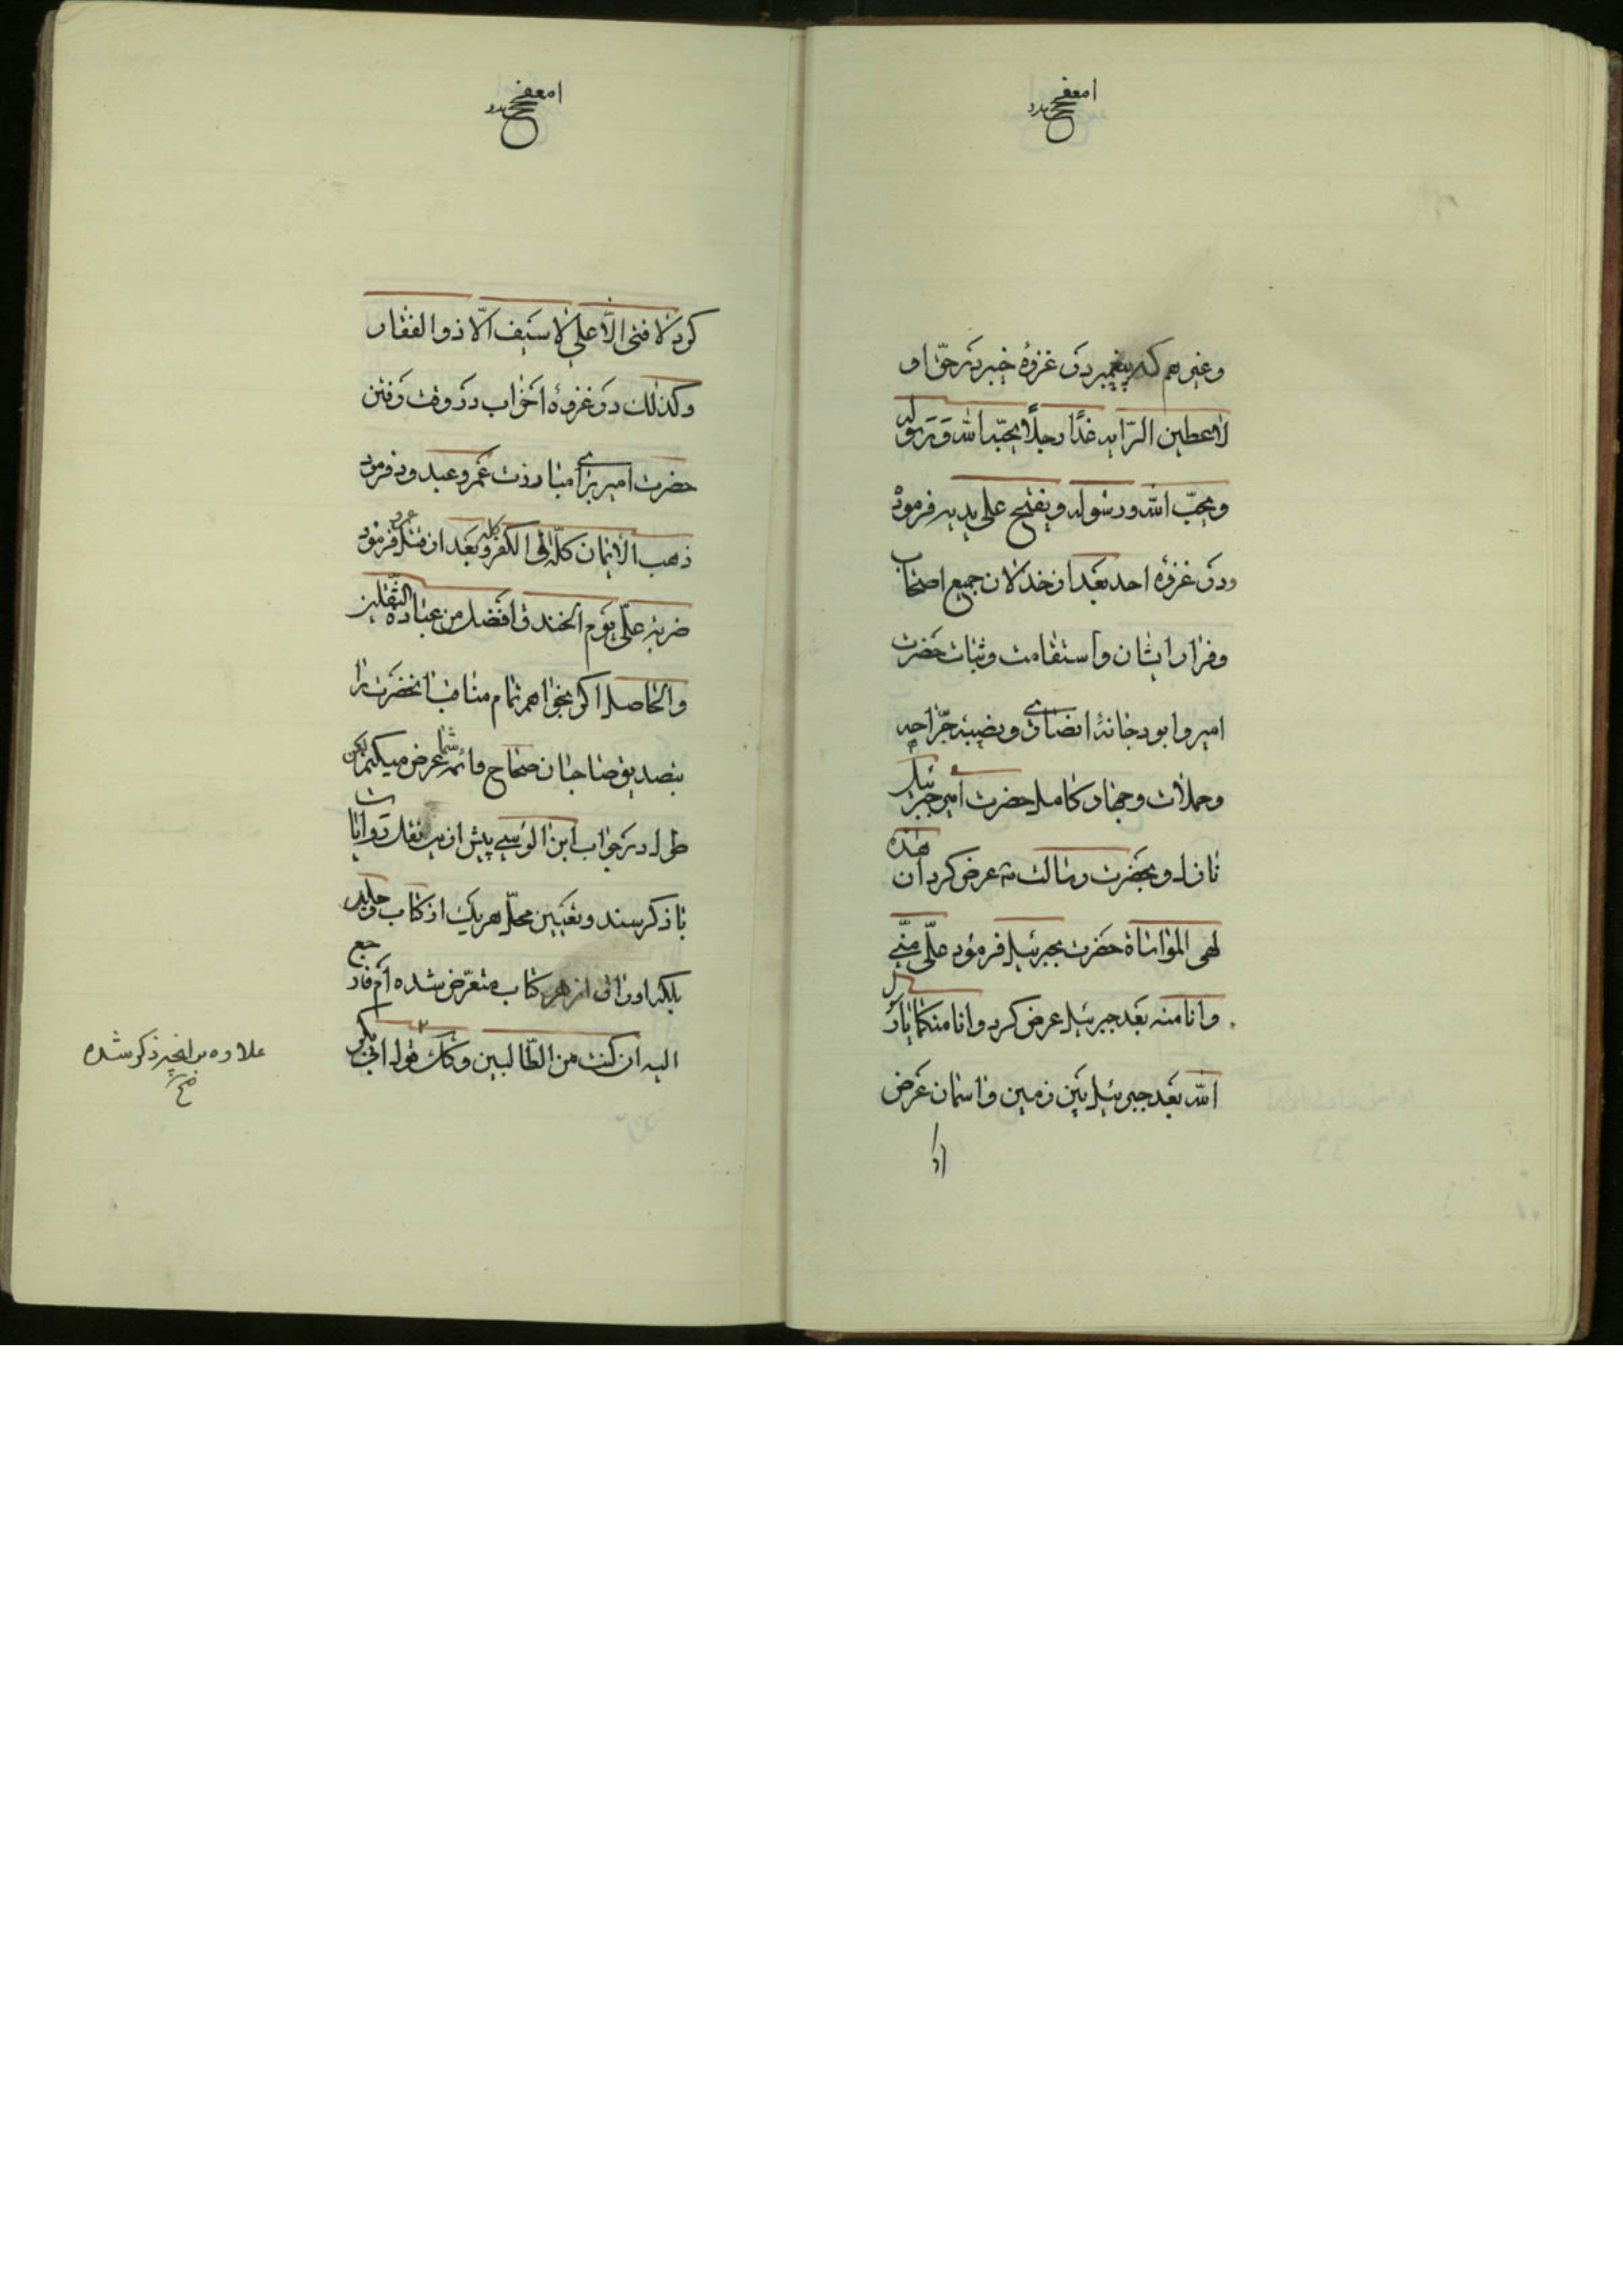 وغیرهم که پیغمبر در غزوهٔ خیبر در حق او
لأعطین الرایه غدًا رجلًا یحبّه الله و رسوله
و یحبّ الله و رسوله و یفتح علی یدیه فرموده
و در غزوه احد بعد از خذلان جمیع اصحاب
و فرار ایشان و استقامت و ثبات حضرت
امیر و ابو دجانهٔ انصاری و نصیبهٔ جرّاحه
و حملات و جهاد کامله حضرت امیر جبرئیل
نازل و بحضرت رسالت عرض کرد ان هذه
لهی المواساة حضرت بجبرئیل فرمود علیّ منّی
و انا منه بعد جبرئیل عرض کرد و انا منکما یا رسول
الله بعد جبرئیل بین زمین و اسمان عرض
کرد لا فتی الّا علی لا سیف الّا ذو الفقار
و کذلک در غزوهٔ احزاب در وقت رفتن
حضرت امیر برای مبارزت عمرو عبد ود فرمود
ذهب الأیمان کلّه الی الکفر کله و بعد از قتل عمرو فرمود
ضربة علیّ یوم الخندق افضل من عبادة الثقلین
و الحاصل اگر بخواهم تمام مناقب آنحضرت را
بتصدیق صاحبان صحاح و ائمه شما عرض میکنم لکن
در جواب ابن الوسی پیش ازین نقل روایات
با ذکر سند و تعیین محلّ هر یک از کتاب و جلد
بلکه اوراق از هر کتاب متعرّض شده‌ام فارجع
الیه ان کنت من الطّالبین و کذلک قوله ابی بکر
علاوه بر انچه ذکر شده
صح